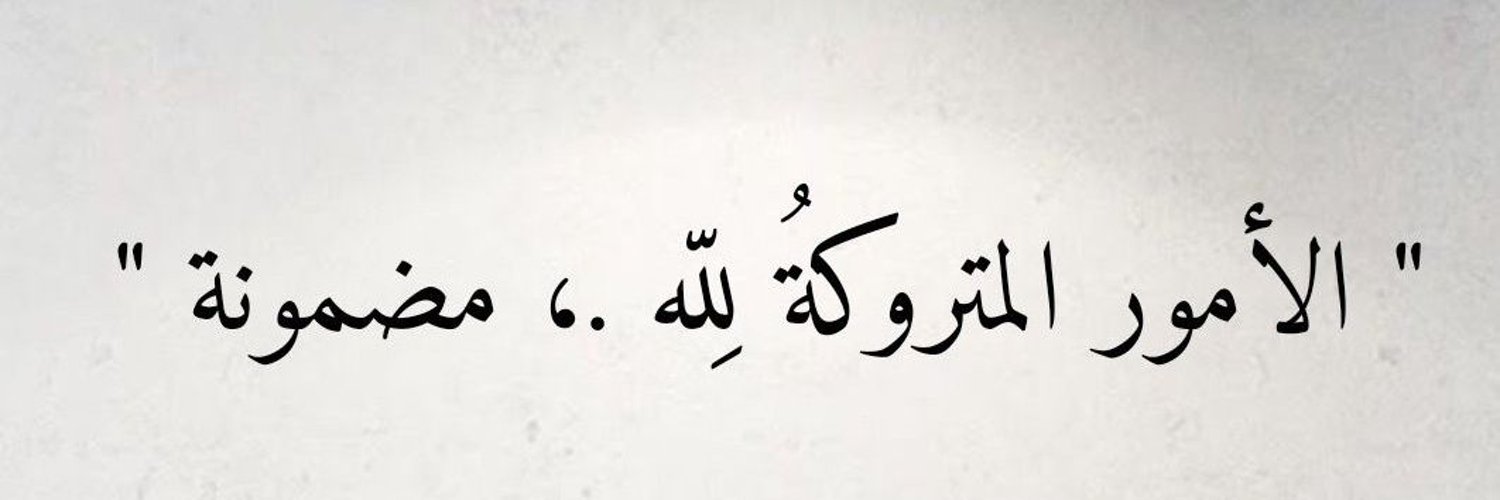 " الأمور المتروكةُ لِلّه .، مضمونة "